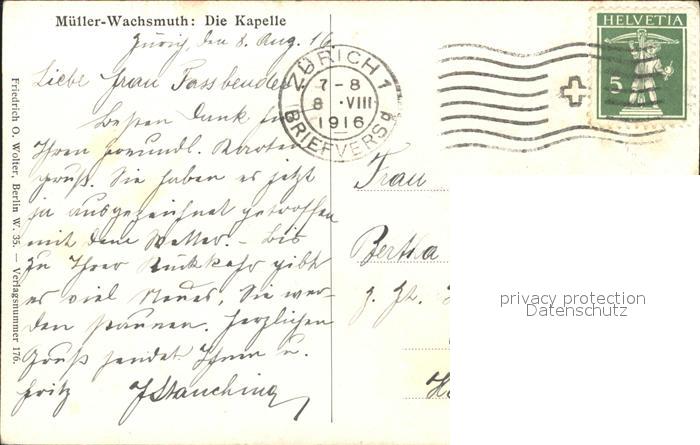 Müller-Wachsmuth: Die Kapelle
Zürich, den 8. Aug. 16
Liebe Frau Fassbender
Besten Dank für
Ihren freundl. Karten
gruß. Sie haben es jetzt
ja ausgezeichnet getroffen
mit dem Wetter. – Bis
zu Ihrer Rückkehr gibt
es viel Neues, Sie wer-
den staunen. Herzlichen
Gruß sendet Ihnen u.
Fritz
Friedrich O. Wolter, Berlin W. 35. — Verlagsnummer 176.
ZÜRICH 1
7-8
8 ·VIII
1916
BRIEFVERSd
HELVETIA
5
Frau
Bertha
z. Zt.
privacy protection
Datenschutz